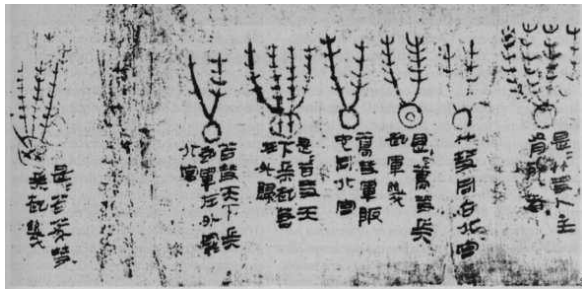 是=竹彗人主
有死者
竹彗同占北宫
是=蒿彗兵
起軍幾
蒿彗軍阪
它同北宫
是=苫彗天
下兵起若
在外歸
苫彗天下兵
起軍在外罷
北宫
是=苫發彗
兵起幾